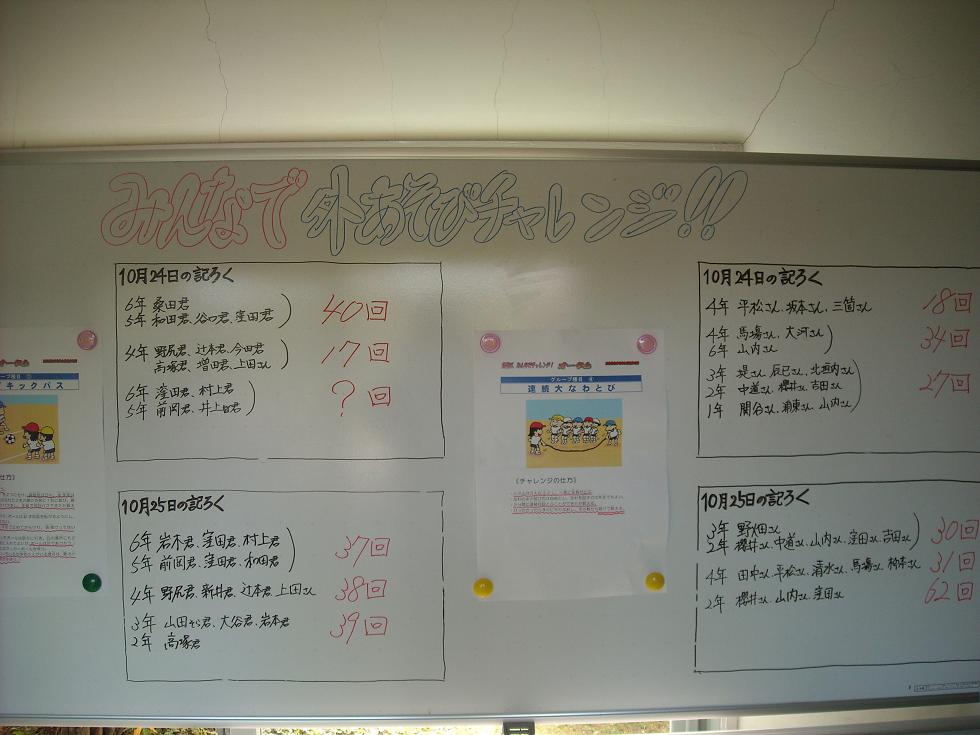 みんなで外あそびチャレンジ!!
10月24日の記ろく
6年 桑田君
5年 和田君、谷口君、窪田君
40回
4年 野尻君、辻本君、今田君
高塚君、増田君、上田さん
17回
6年 窪田君、村上君
5年 前岡君、井上君
? 回
10月25日の記ろく
6年 岩木君、窪田君、村上君
5年 前岡君、窪田君、和田君
37回
4年 野尻君、新井君、辻本君、上田さん
38回
3年 山田そら君、大谷君、岩本君
2年 高塚君
39回
キックパス
オータム
連続大なわとび
《チャレンジの仕方》
10月24日の記ろく
4年 平松さん、坂本さん、三箇さん
18回
4年 馬場さん、大河さん
6年 山内さん
34回
3年 堤さん、辰巳さん、北垣内さん
2年 中道さん、櫻井さん、吉田さん
1年 関谷さん、浦東さん、山内さん
27回
10月25日の記ろく
3年 野畑さん
2年 櫻井さん、中道さん、山内さん、窪田さん、吉田さん
30回
4年 田中さん、平松さん、清水さん、馬場さん、柿本さん
31回
2年 櫻井さん、山内さん、窪田さん
62回